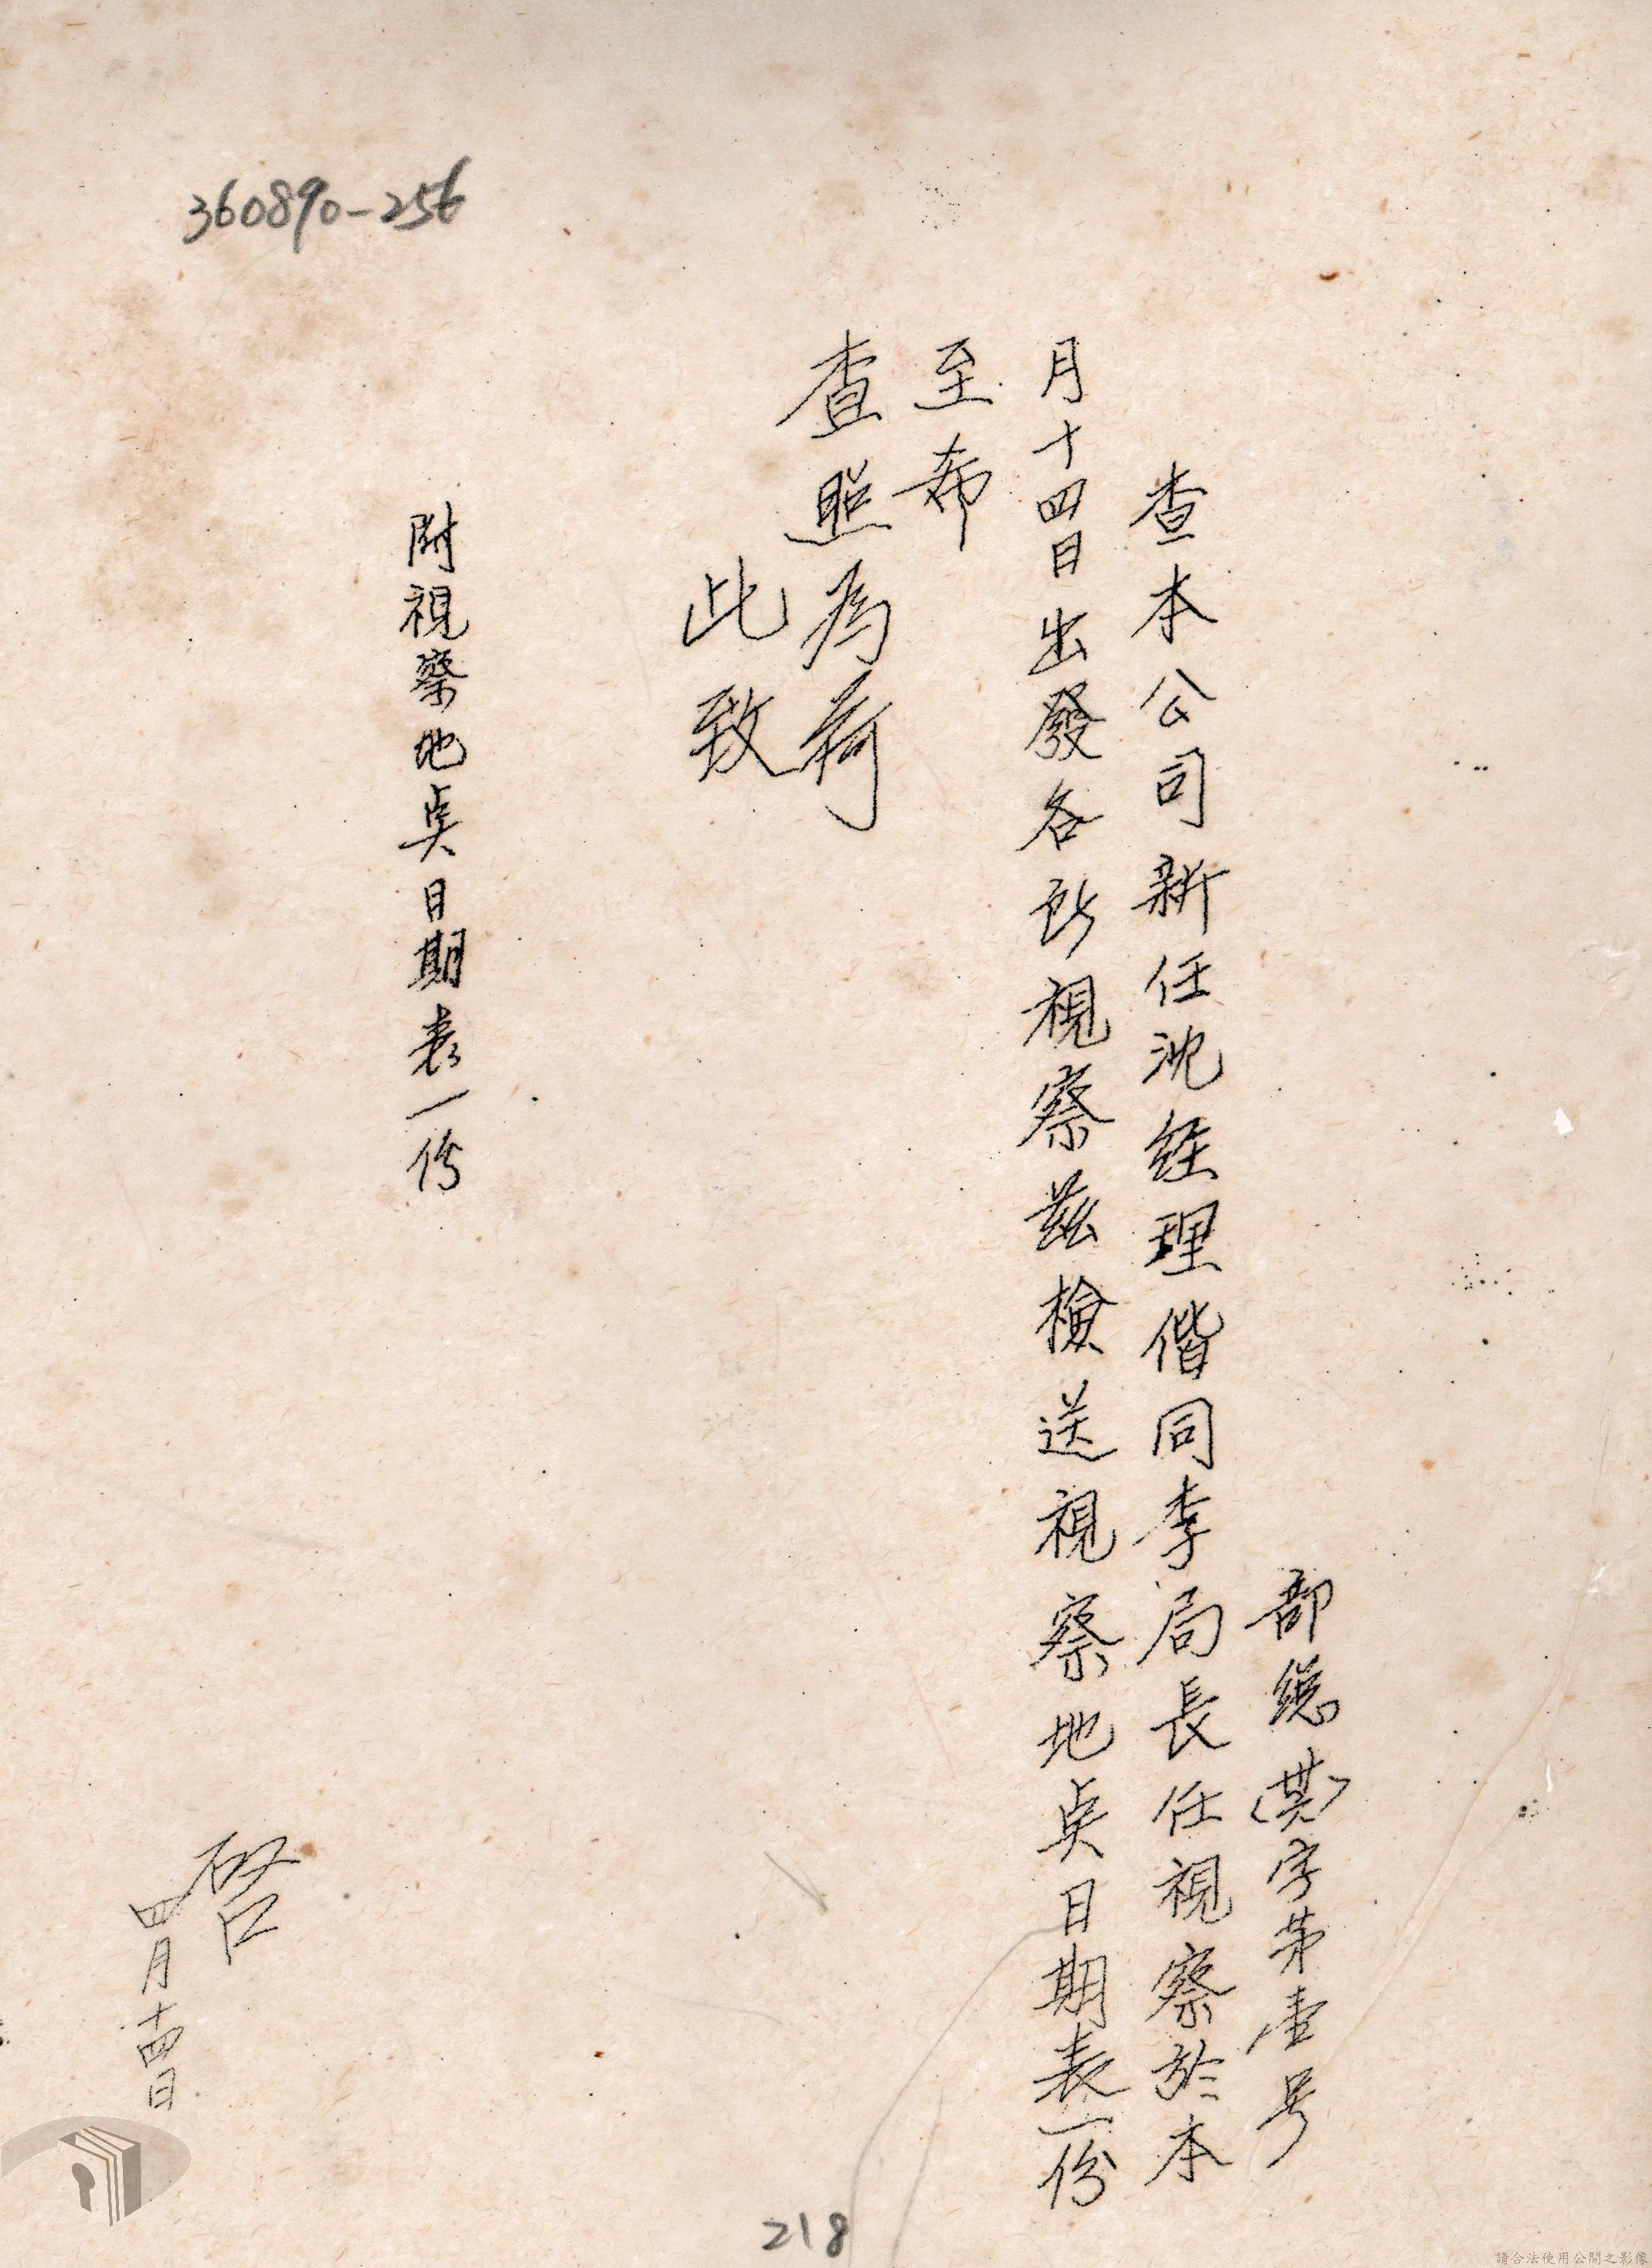 360890-256
部總(業)字第壹号
查本公司新任沈經理偕同李局長任視察於本
月十四日出發各所視察茲檢送視察地奌日期表一份
至希
查照為荷
此致
附視察地奌日期表一份
啓
四月十四日
218
請合法使用公開之影像